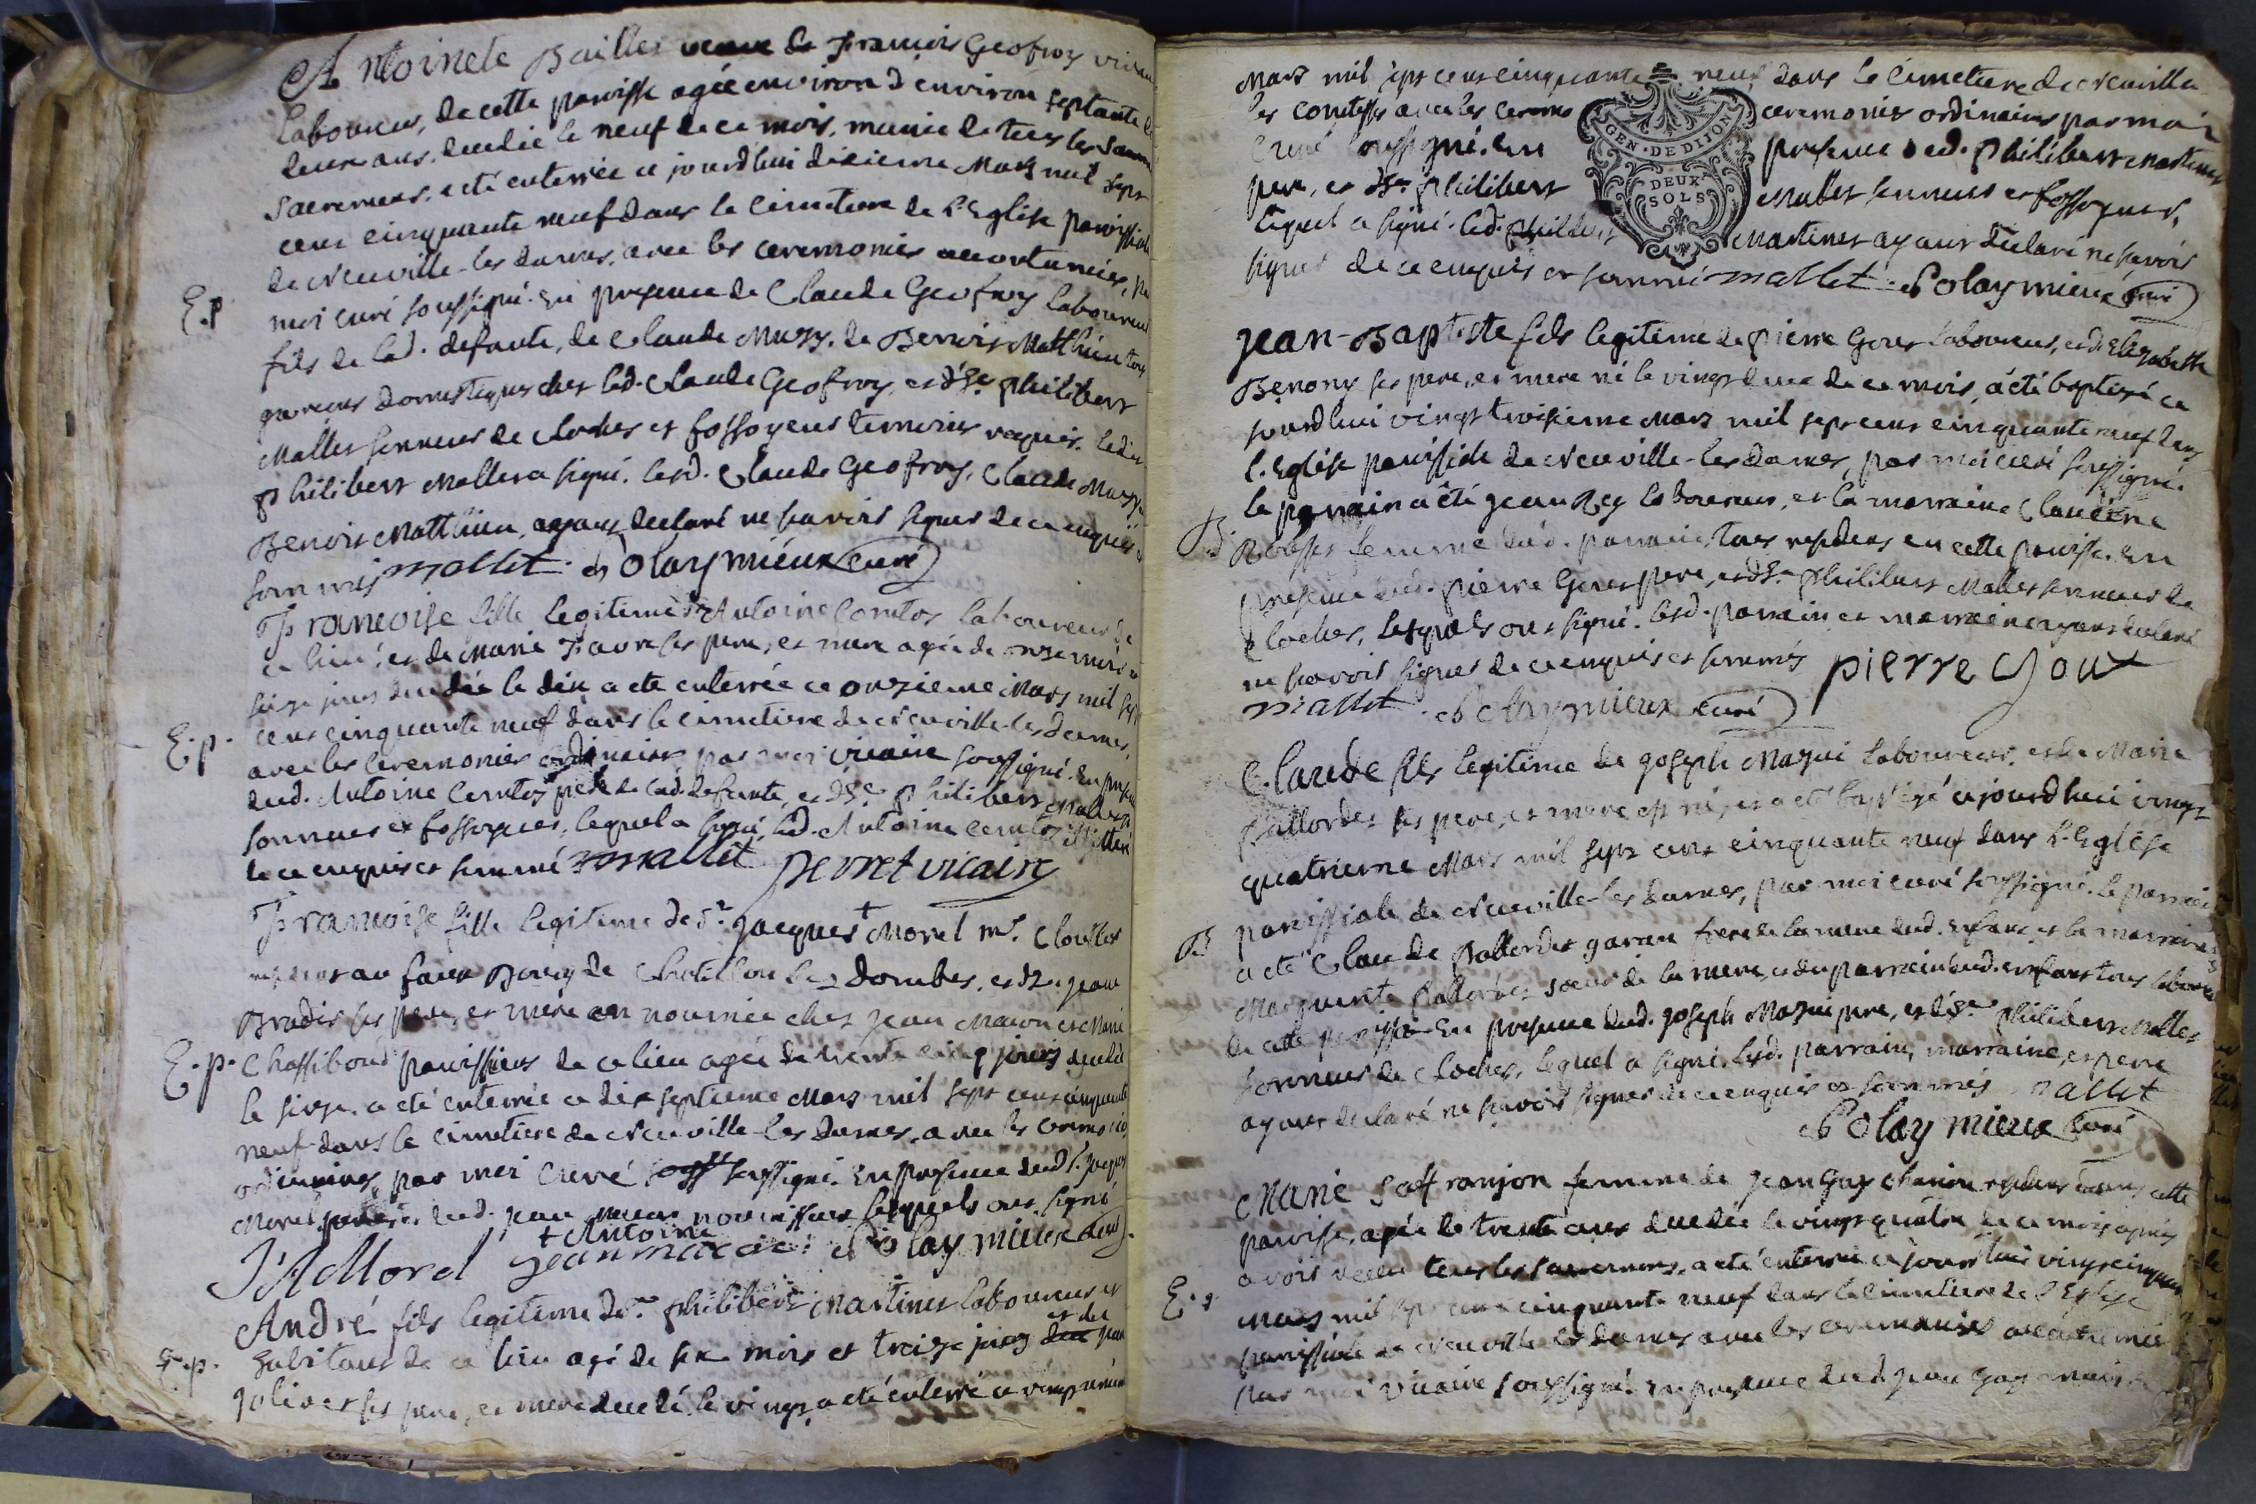 Antoinete Bailles veuve de François Geofroy vivant
laboureur, de cette paroisse agée environ d'environ septante et
deux ans. decedée le neuf de ce mois, munie de tous les
sacremens. a été enterrée ce jourd'hui dixieme Mars mil sept
cent cinquante neuf dans le cimetiere de l'Eglise paroissiale
de Neuville-les dames. avec les ceremonies accoutumées, par
E.p
moi curé soussigné. En presence de Claude Geofroy laboureur
fils de lad. defunte, de Claude Muzy. de Benoit Matthieu tous
garcons domestiques chez led. Claude Geofroy, et d'Sr. philibert
Mallet sonneur de cloches et fossoyeur temoins requis. ledit
philibert Mallet a signé. lesd. Claude Geofroy, Claude Muzy
Benoit Matthieu, ayans declaré ne sçavoir signer de ce enquis et
sommés mallet. Polaymieux curé
Francoise fille legitime d'Antoine Comtos laboureur de
ce lieu, et de Marie Favre ses pere, et mere agée de onze mois et
seize jours decedée le dix a eté enterrée ce onzieme Mars mil sept
E.p.
cent cinquante neuf dans le cimetiere de Neuville-les dames,
avec les ceremonies ordinaires par moi vicaire soussigné. En presence
dud. Antoine Comtos pere de lad. defunte, et d'Sr. philibert Mallet
sonneur et fossoyeur, lequel a signé, led. Antoine Comtos illiteré
de ce enquis et sommé mallet perret vicaire
Francoise fille legitime de Sr. jacques + Morel mr. Cloutier
au faux Bourg de Chatillon les dombes, et de jeane
Bradis ses pere, et mere en nourrice chez jean Macon et Marie
E.p.
Chassiboud paroissiens de ce lieu agée de trente cinq jours decedée
le seize. a eté enterrée ce dix septieme Mars mil sept cent cinquante
neuf dans le cimetiere de Neuville-les dames. avec les ceremonies
ordinaires par moi curé soussigné. En presence dud. Sr. jacques
Morel pere, et dud. jean nourrisseur lesquels ont signé
+ Antoine
J A Morel jean macon Polaymieux curé.
André fils legitime de Sr. philibert Martinet laboureur et
et de
E.p.
habitant de ce lieu agé de six mois et treize jours
Jolivet ses pere, et mere decedé le vingt a eté enterré ce vingt unieme
Mars mil sept cent cinquante neuf dans le cimetiere de Neuville
les comtesses avec les ceremo ceremonies ordinaires par moi
GEN. DE DIJON
DEUX SOLS
curé soussigné. En presence dud. philibert Martinet
pere, et d'Sr. philibert Mallet sonneur et fossoyeur,
lequel a signé. led. philibert Martinet ayant declaré ne sçavoir
signer de ce enquis et sommé mallet. Polaymieux curé
Jean-Baptiste fils legitime de pierre Goux laboureur, et d'Elizabeth
Benony ses pere, et mere né le vingt deux de ce mois, a été baptizé ce
jourd'hui vingt troisieme Mars mil sept cent cinquante neuf dans
l'Eglise paroissiale de Neuville-les Dames, par moi curé soussigné.
le parrain a été jean Rey laboureur, et la marraine Claudine
B
femme dud. parrain tous residens en cette paroisse. En
presence dud. pierre Goux pere, et d'Sr. philibert Mallet sonneur de
cloches, lesquels ont signé. lesd. parrain et marraine ayans declaré
ne sçavoir signer de ce enquis et sommés pierre Goux
mallet. Polaymieux curé
Claude fils legitime de joseph Mazui laboureur, et de Marie
Pallordet ses pere, et mere est né, et a eté baptizé ce jourd'hui vingt
quatrieme Mars mil sept cent cinquante neuf dans l'Eglise
paroissiale de Neuville-les dames, par moi curé soussigné. le parrain
B
a eté Claude Pallordet garcon frere de la mere dud. enfant, et la marraine
Marguerite Pallordet soeur de la mere, et du parrain dud. enfant tous
de cette paroisse. En presence dud. joseph Mazui pere, et d'Sr. philibert Mallet
sonneur de cloches, lequel a signé. lesd. parrain, marraine, et pere
ayans declaré ne sçavoir signer de ce enquis et sommés mallet
Polaymieux curé
Marie Saffranjon femme de jean Gay residant dans cette
paroisse, agée de trente ans decedée le vingt quatre de ce mois après
avoir receu tous les sacremens, a eté enterrée ce jourd'hui vingt cinquieme
E.p
Mars mil sept cent cinquante neuf dans le cimetiere de l'Eglise
paroissiale de Neuville les dames avec les ceremonies accoutumées
par moi vicaire soussigné. En presence dud. jean Gay